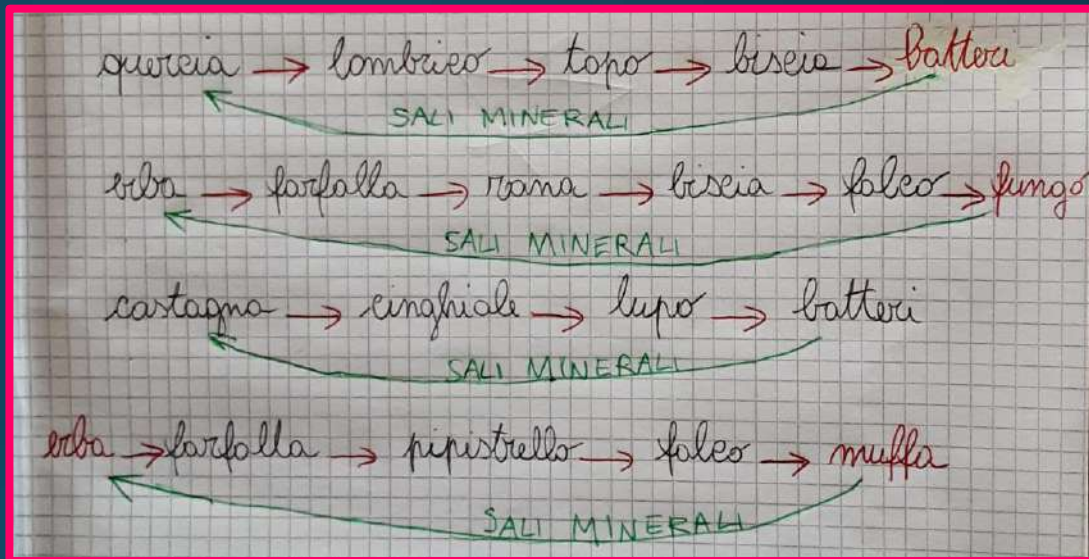 quercia → lombrico → topo → biscia → batteri
SALI MINERALI
erba → farfalla → rana → biscia → falco → fungo
SALI MINERALI
castagna → cinghiale → lupo → batteri
SALI MINERALI
erba → farfalla → pipistrello → falco → muffa
SALI MINERALI